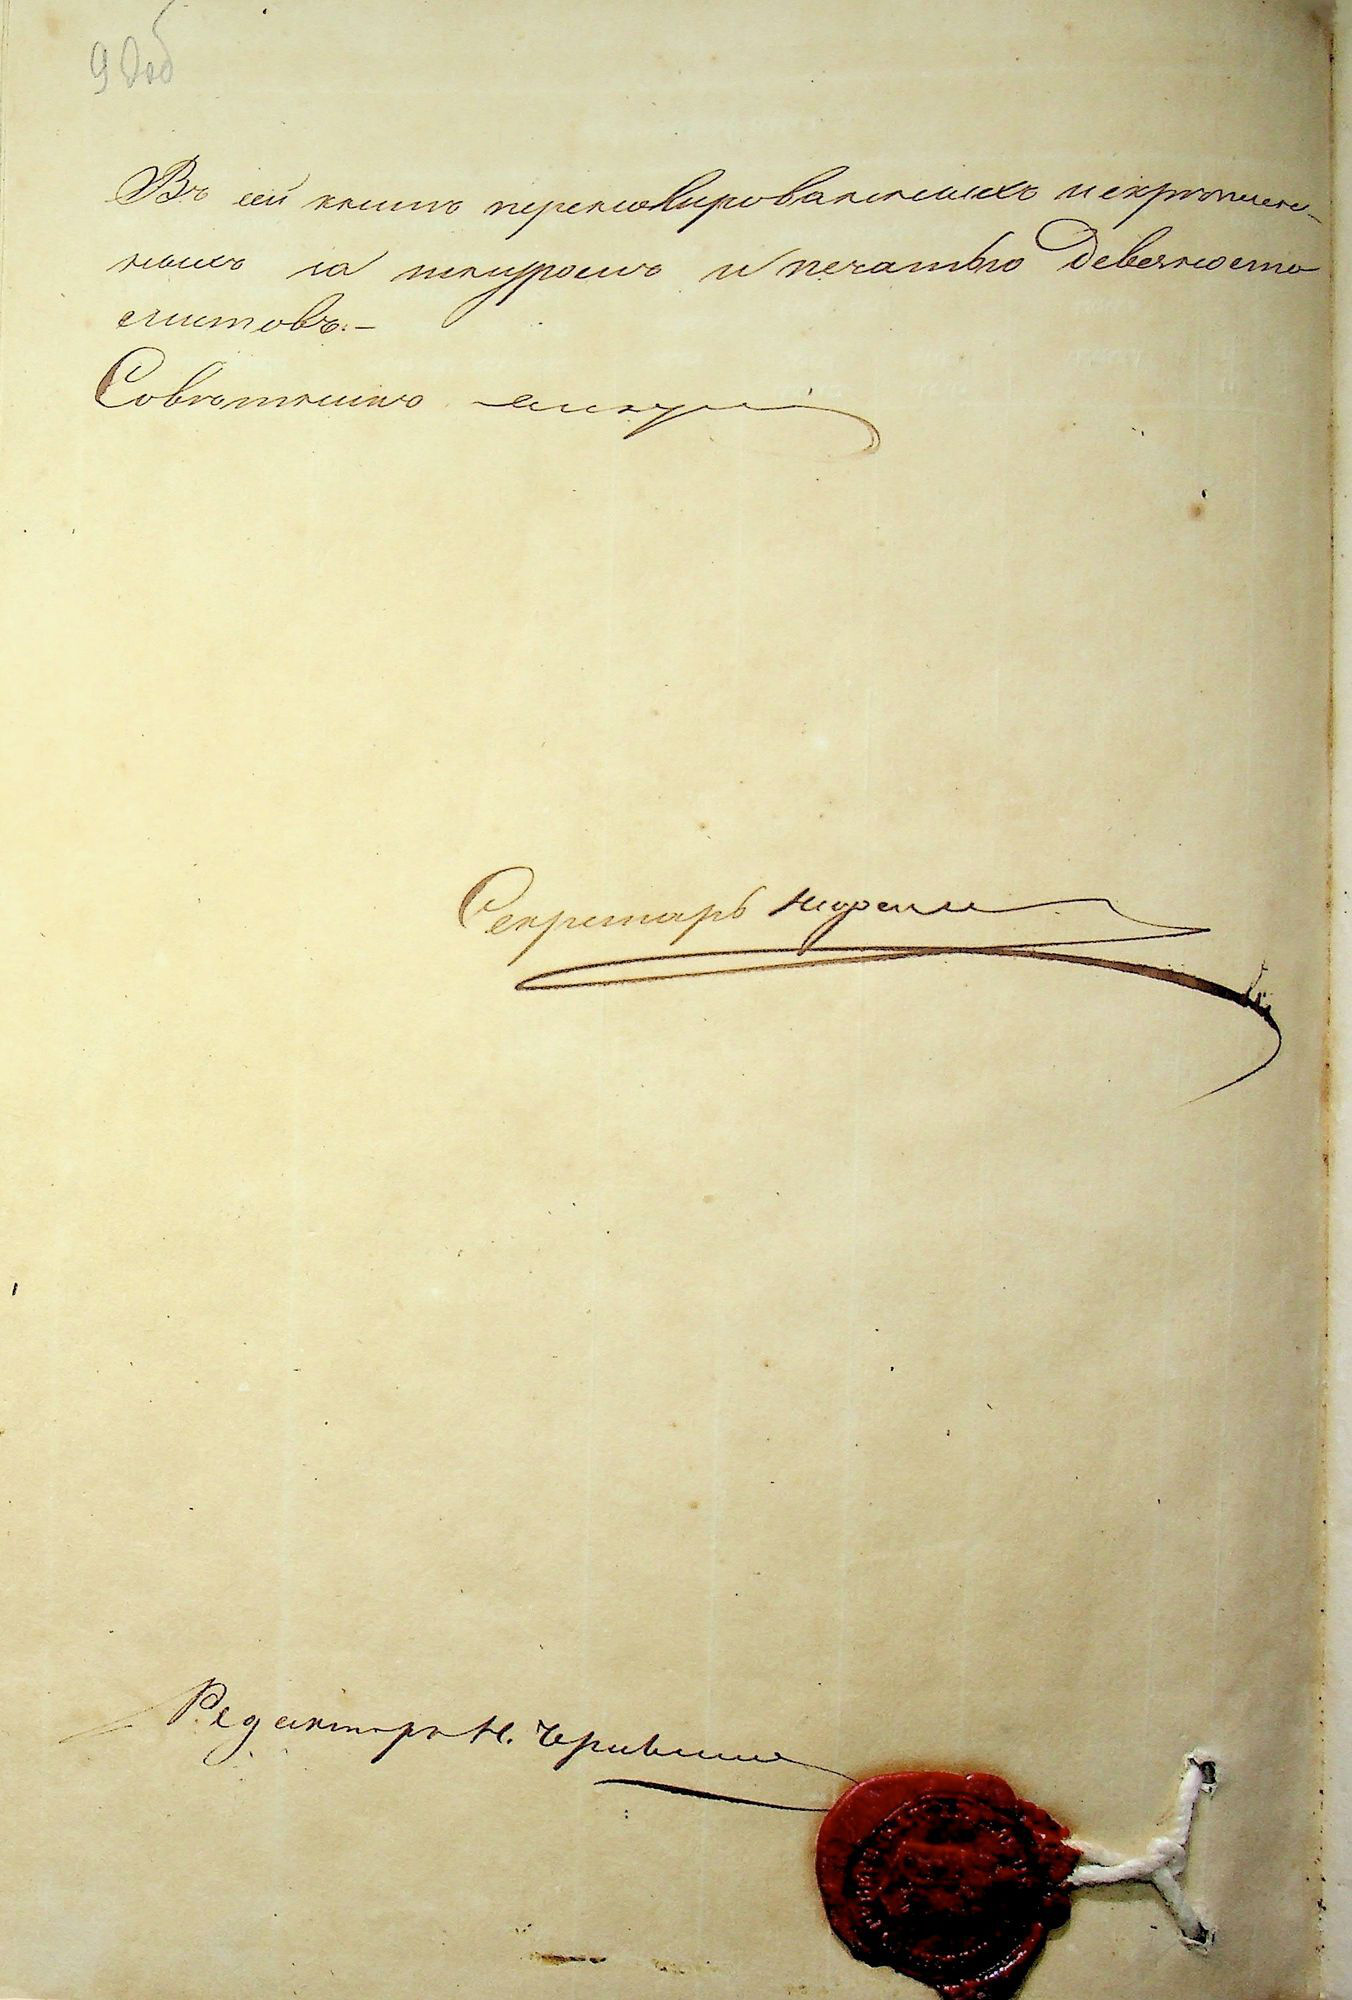 90 об
Въ сей книгѣ перенумерованныхъ и скрѣплен-
ныхъ за шнуромъ и печатью девяносто
листовъ.—
Совѣтникъ
Секретарь
Редакторъ Н.